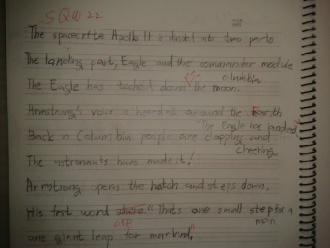 SQW 22
The spacecraftle Apollo 11 is divided into two parts
The landing part, Eagle and the commander module
Columbia
The Eagle has touched down the moon.
Armstrong's voice is heard all around the Earth
"The Eagle has landed"
Back in Columbia people are clapping and
cheering
The astronauts have made it!
Armstrong opens the hatch and steps down.
His first word are "Thats one small step for a
man
one giant leap for mankind."